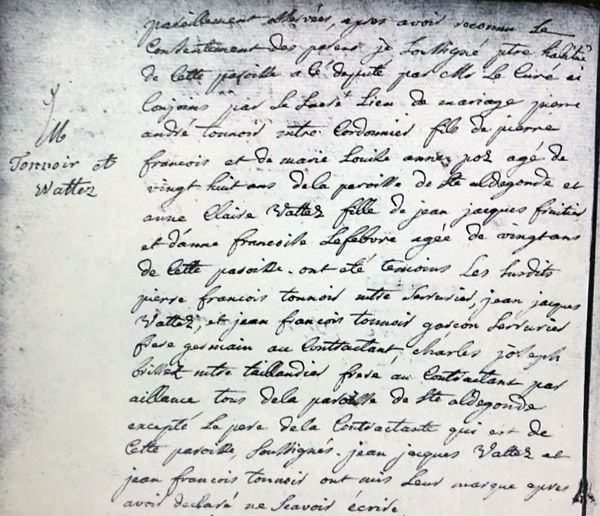 pareillement observées, apres avoir reconnu Le
Consentement des parens je Soussigné ptre habitué
de Cette paroisse a lé deputé par Mr Le Curé ai
Conjoins par Le Sacré Lien de mariage pierre
andre tonnoir mtre Cordonnier fils de pierre
M
francois et de marie Louise anne poz agé de
Tonnoir et
Wattez
vingt huit ans dela paroisse de Ste aldegonde et
anne Claire Wattez fille de jean jacques fruitier
et d'anne francoise Lefebvre agée de vingt ans
de Cette paroisse. ont été temoins Les Susdits
pierre francois tonnoir mtre Serrurier, jean jacques
Wattez, et jean francois tonnoir garcon Serrurier
frere germain au Contractant, charles joseph
brillez mtre taillandier frere au Contractant par
aillance tous dela paroisse de Ste aldegonde
excepté Le pere dela Contractante qui est de
Cette paroisse Soussignés. jean jacques Wattez et
jean francois tonnoir ont mis Leur marque apres
avoir declaré ne Scavoir écrire.